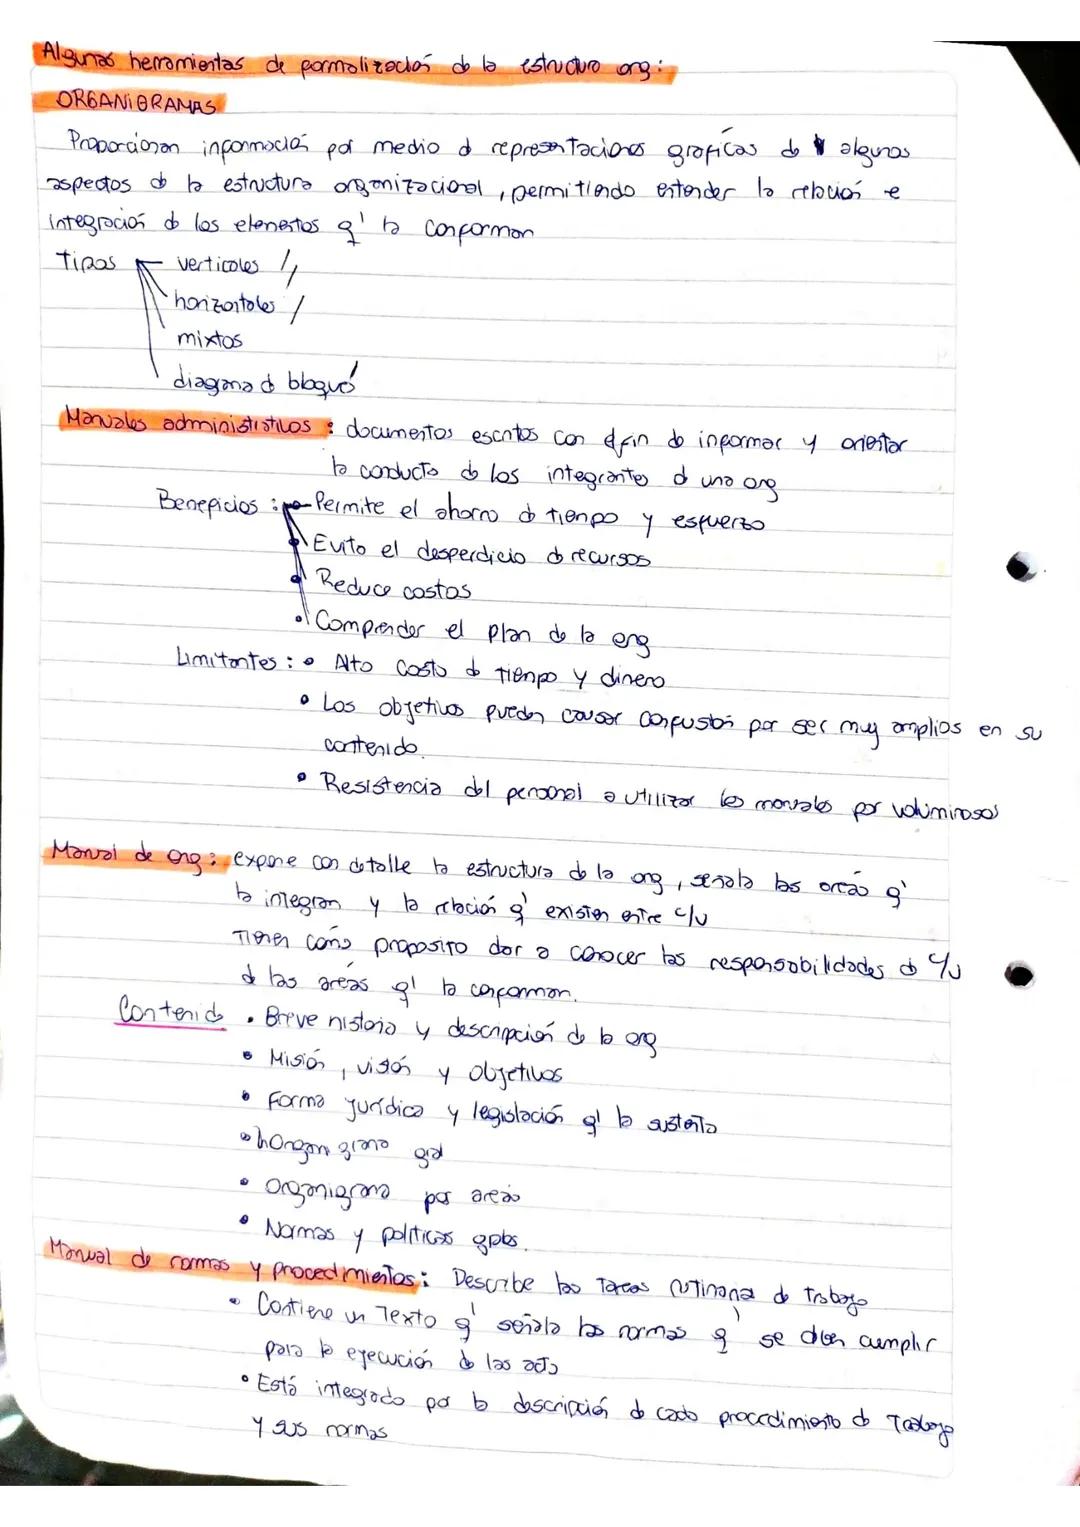 Algunas herramientas de formalización de la estructura org:
ORGANIGRAMAS
Proporcionan información por medio d representaciones gráficas de algunos
aspectos de la estructura organizacional, permitiendo entender la relación e
integración de los elementos q' la conforman
Tipos verticales
horizontales
mixtos
diagrama d bloque
Manuales administrativos: documentos escritos con el fin de informar y orientar
la conducta de los integrantes d una org
Beneficios: • Permite el ahorro d tiempo y esfuerzo
• Evita el desperdicio d recursos
• Reduce costos
• Comprender el plan de la org
Limitantes: • Alto costo d tiempo y dinero
• Los objetivos pueden causar confusión por ser muy amplios en su
contenido.
• Resistencia del personal a utilizar los manuales por voluminosos
Manual de org: expone con detalle la estructura de la org, señala las áreas q'
la integran y la relación q' existen entre c/u
Tienen como proposito dar a conocer las responsabilidades d c/u
d las áreas q' la conforman.
Contenido • Breve historia y descripción de la org
• Misión, visión y objetivos
• Forma jurídica y legislación q' la sustenta
• gral
• Organigrama por áreas
• Normas y políticas grales.
Manual de normas y procedimientos: Describe las tareas rutinarias de trabajo
• Contiene un Texto q' señala las normas q' se dben cumplir
para la ejecución d las act
• Está integrado por la descripción d cada procedimiento d Trabajo
y sus normas